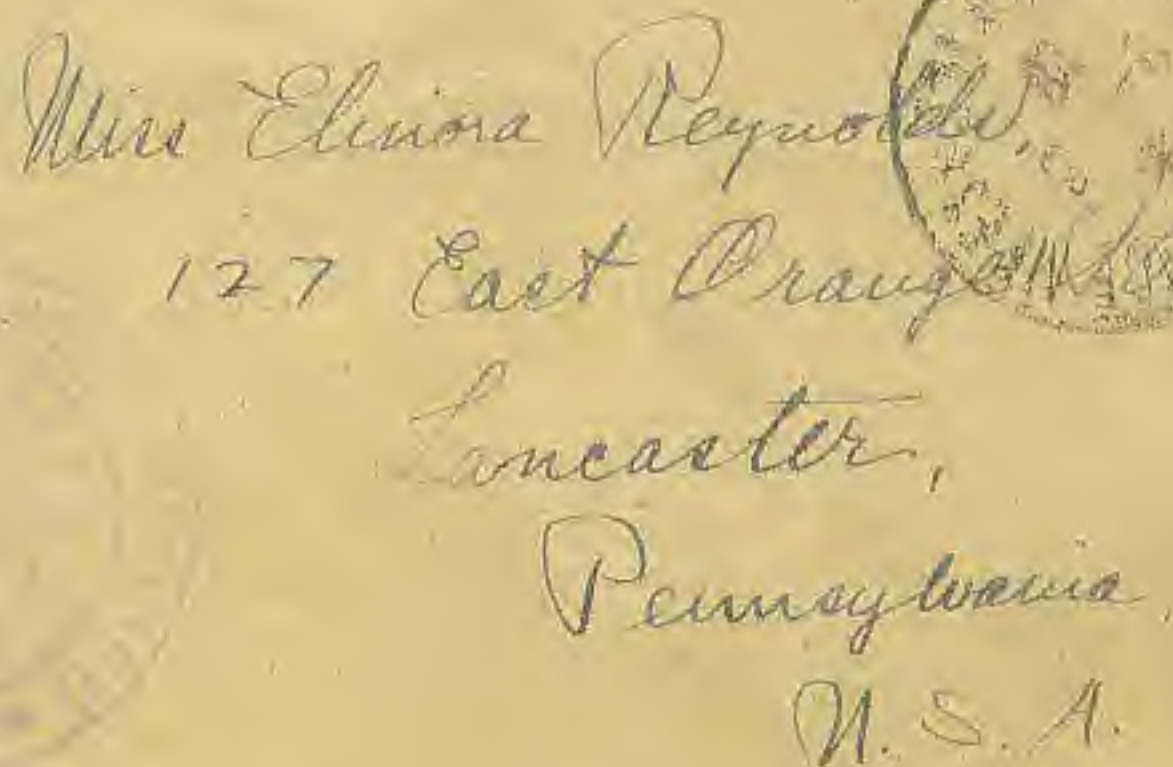 Miss Elinora Reynolds,
127 East Orange
Lancaster,
Pennsylvania,
U. S. A.